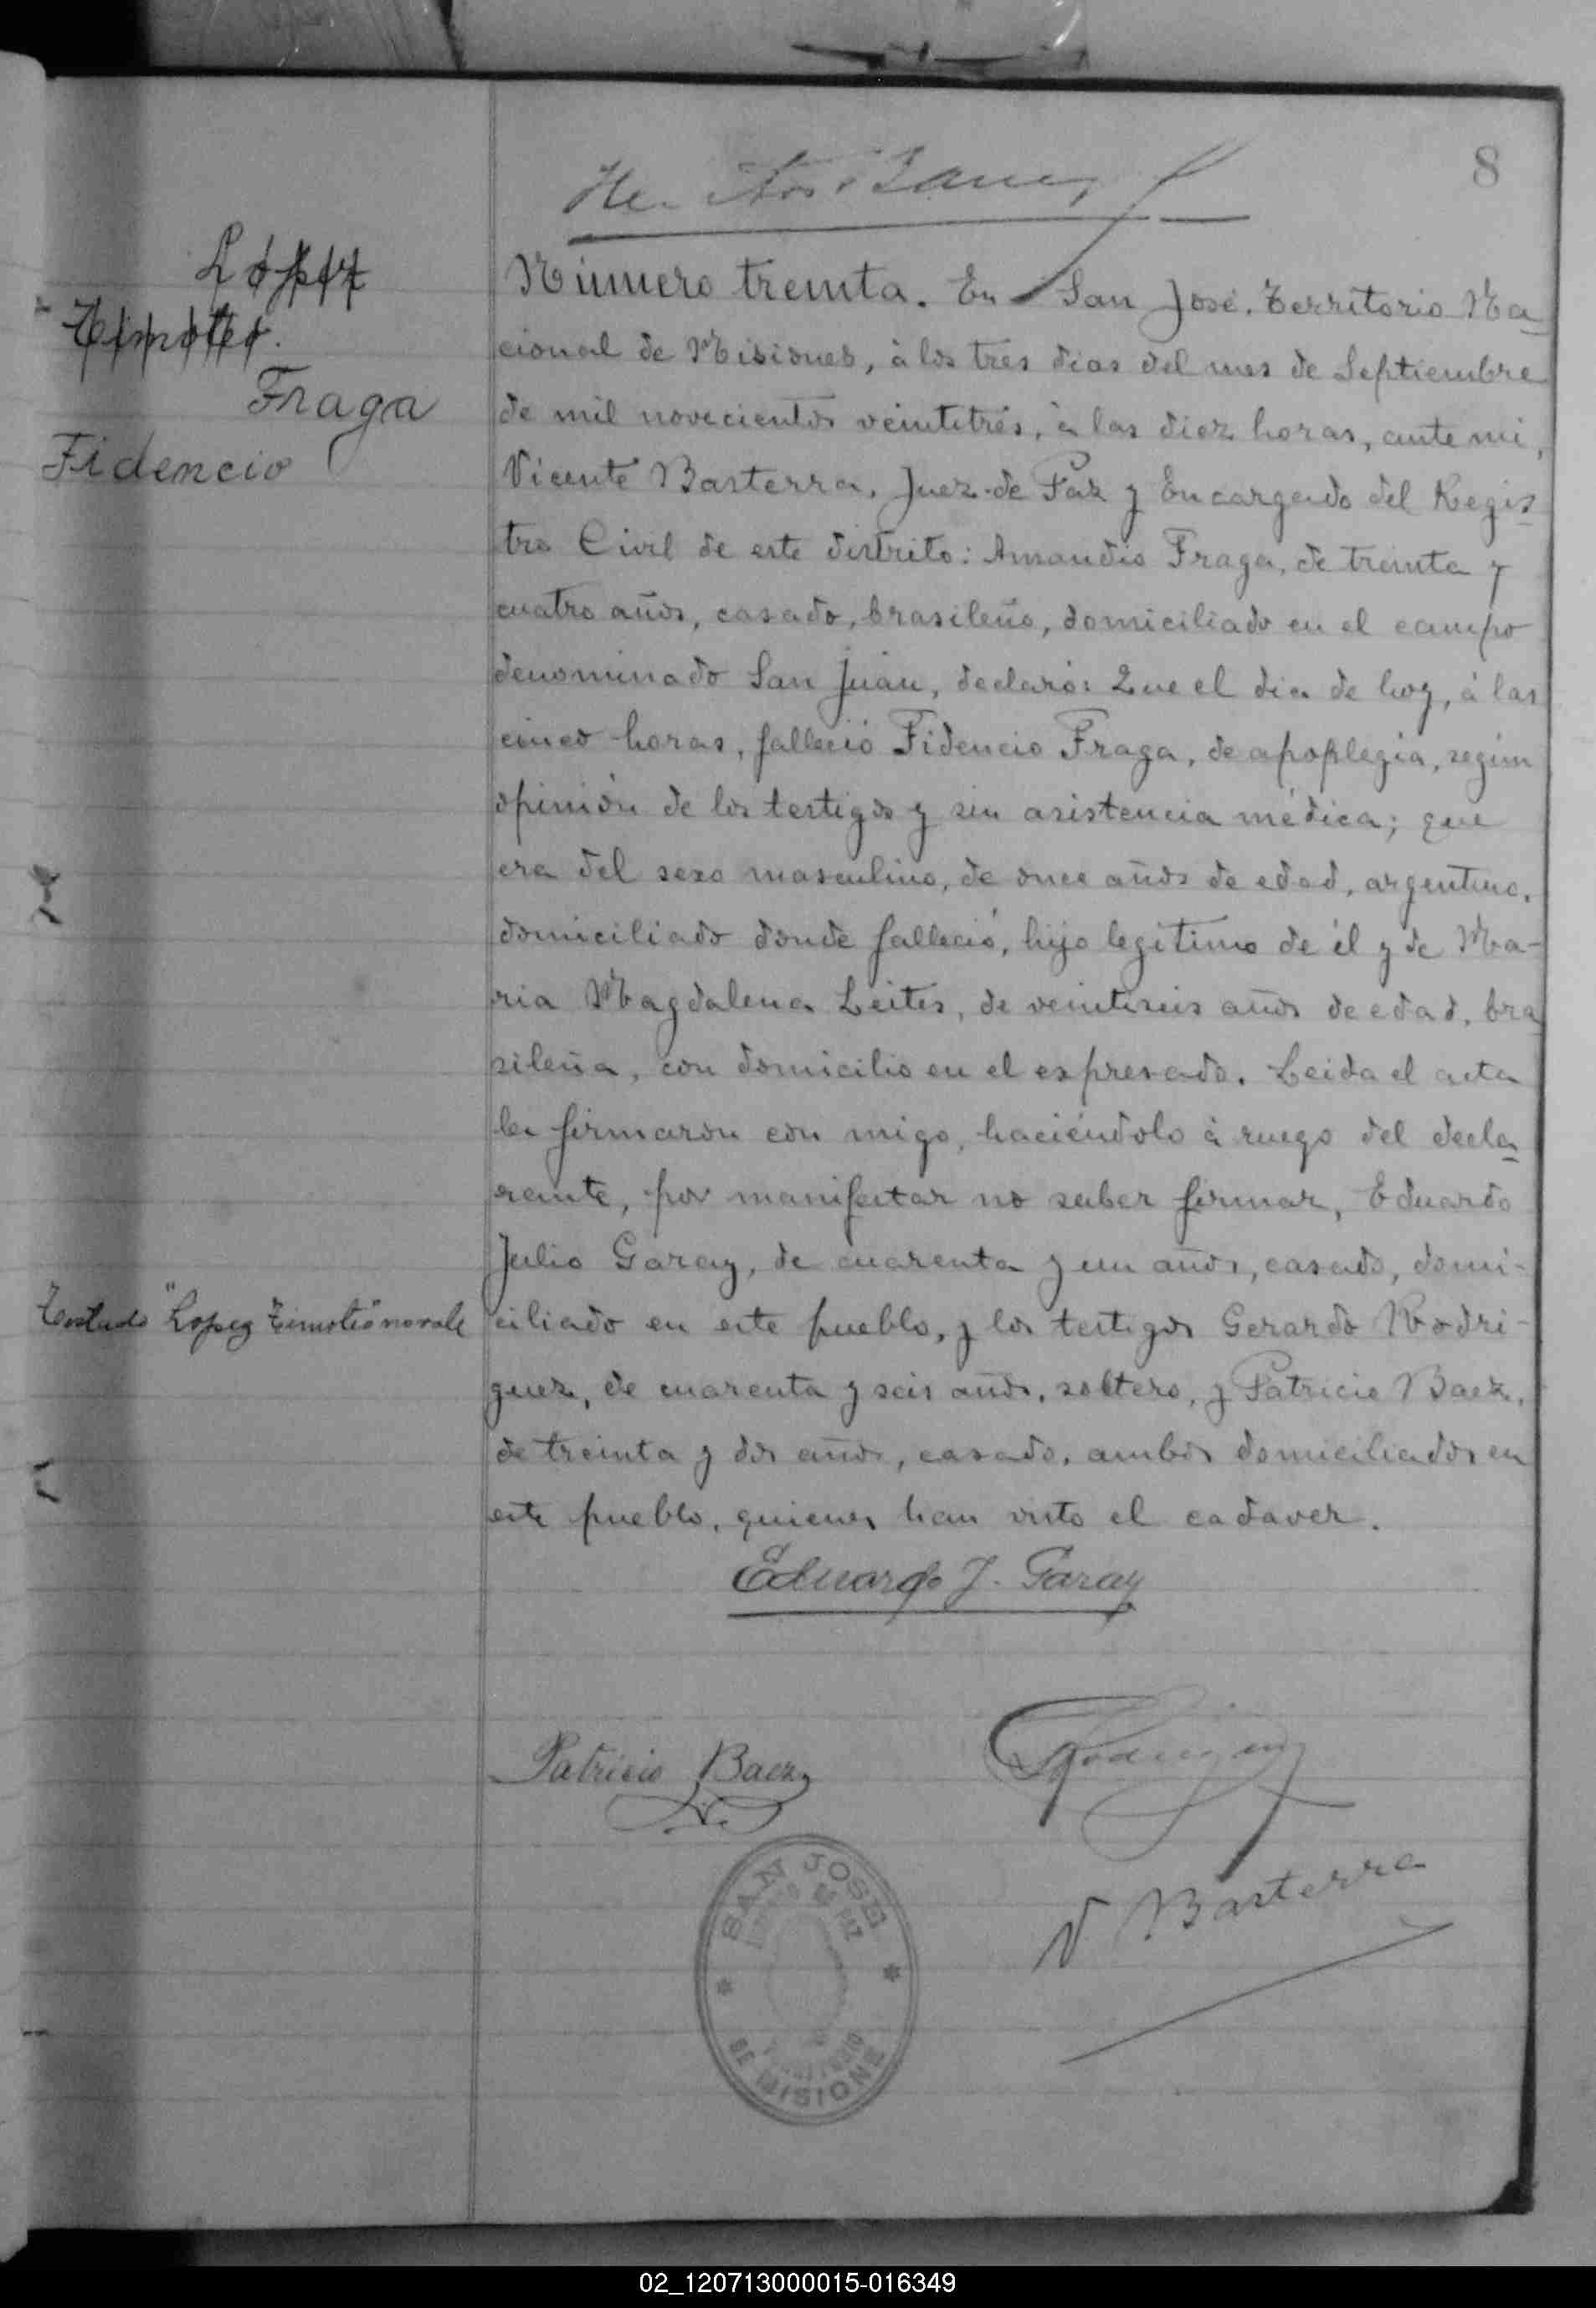 8
López
Timoteo.
Fraga
Fidencio
Número treinta. En San José, Territorio Na-
cional de Misiones, à los tres dias del mes de Septiembre
de mil novecientos veintitrés, à las diez horas, ante mi,
Vicente Basterra, Juez de Paz y Encargado del Regis-
tro Civil de este distrito: Amandio Fraga, de treinta y
cuatro años, casado, brasileño, domiciliado en el campo
denominado San Juan, declaró: Que el dia de hoy, à las
cinco horas, falleció Fidencio Fraga, de apoplegia, según
opinión de los testigos y sin asistencia médica; que
era del sexo masculino, de once años de edad, argentino,
domiciliado donde falleció, hijo legítimo de él y de Ma-
ria Magdalena Leites, de veintiseis años de edad, bra
sileña, con domicilio en el expresado. Leida el acta
la firmaron con migo, haciéndolo à ruego del decla-
rante, por manifestar no saber firmar, Eduardo
Julio Garay, de cuarenta y un años, casado, domi-
Testado "Lopez Timoteo" no vale
ciliado en este pueblo, y los testigos Gerardo Rodri-
guez, de cuarenta y seis años, soltero, y Patricio Baez,
de treinta y dos años, casado, ambos domiciliados en
este pueblo, quienes han visto el cadaver.
Eduardo J. Garay
Patricio Baez
Rodriguez
V Basterra
SAN JOSE
DE PAZ
DE MISIONE
02_120713000015-016349